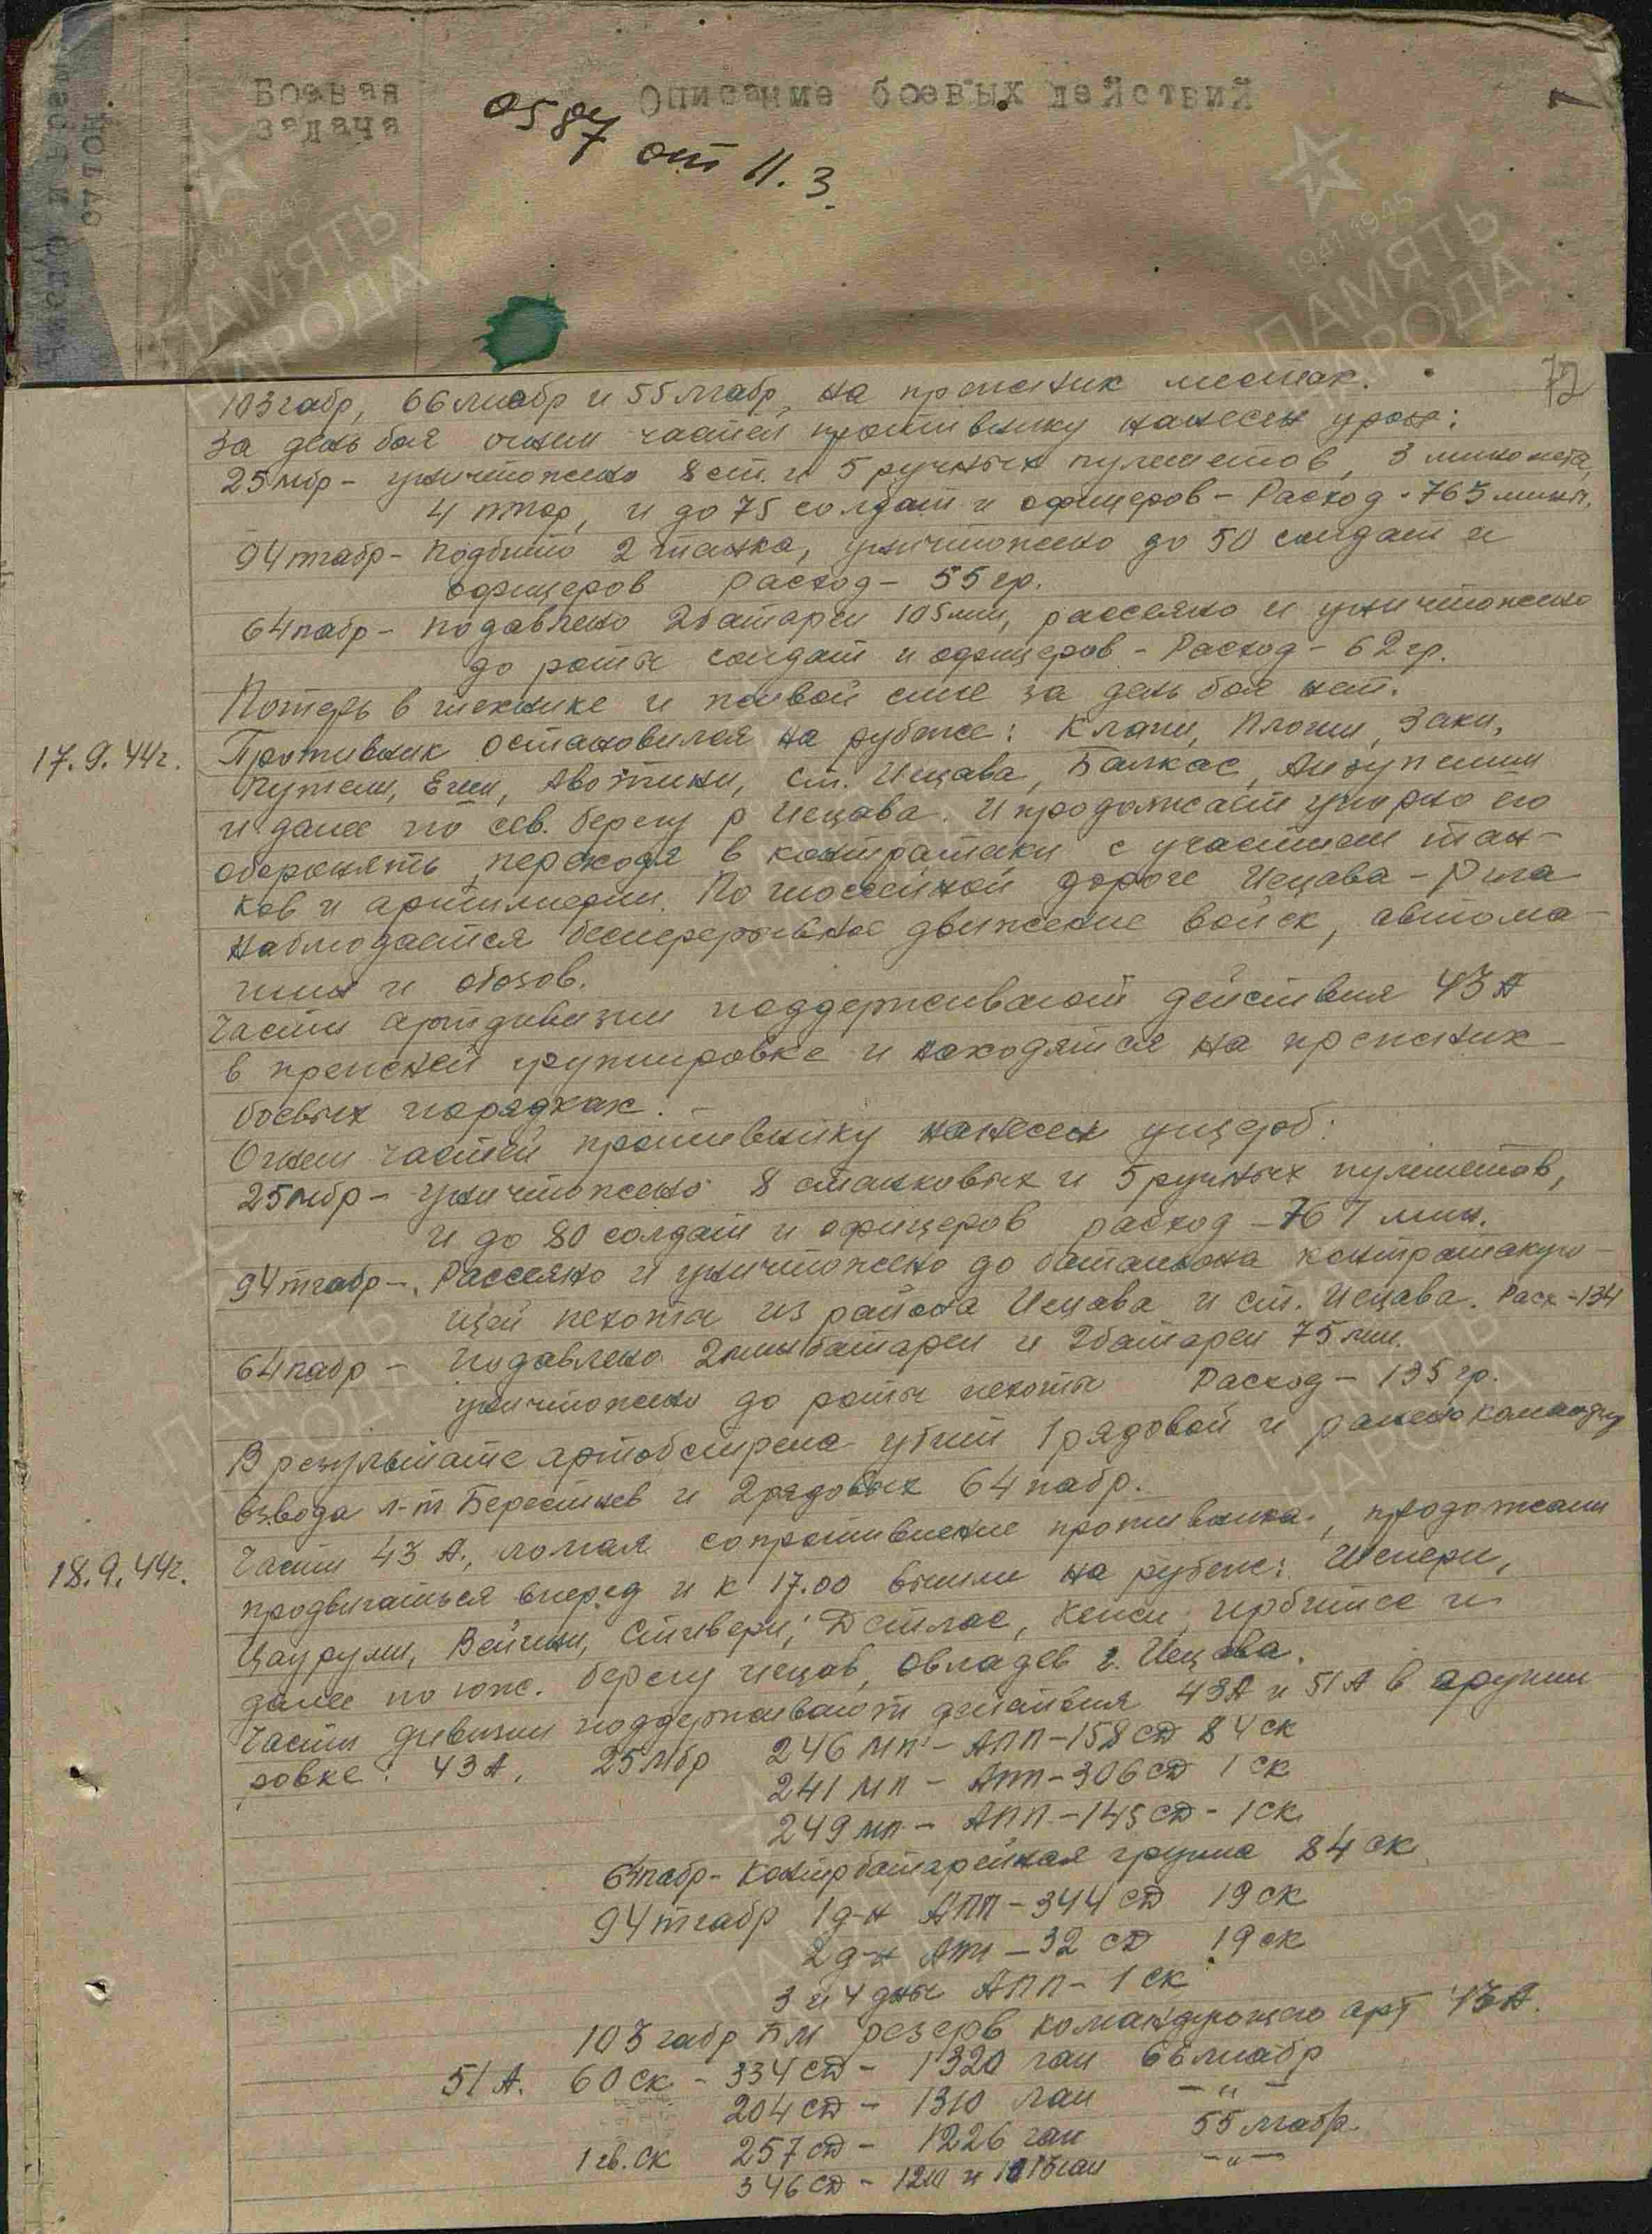 Число и месяц
сутон.
Боевая
задача
Описание боевых действий
0587
от 11.3.
72
103 габр, 66 лиабр и 55 лгабр, на прежних местах.
За день боя огнем частей противнику нанесен урон:
25 мбр - уничтожено 8 ст. и 5 ручных пулеметов, 3 миномета,
4 птор, и до 75 солдат и офицеров - Расход - 765 мины.
94 тгабр - Подбито 2 танка, уничтожено до 50 солдат и
офицеров расход - 55 гр.
64 пабр - подавлено 2 батареи 105 мм, рассеяно и уничтожено
до роты солдат и офицеров - Расход - 62 гр.
Потерь в технике и живой силе за день боя нет.
17.9.44г. Противник остановился на рубеже: Клапи, Плоши, Заки,
Путели, Еги, Авотини, ст. Иецава, Балкас,
и далее по сев. берегу р Иецава. И продолжает упорно его
оборонять, переходя в контратаки с участием тан-
ков и артиллерии. По шоссейной дороге Иецава - Рига
наблюдается беспрерывное движение войск, автома-
шин и обозов.
Части артдивизии поддерживают действия 43 А
в прежней группировке и находятся на прежних
боевых порядках. -
Огнем частей противнику нанесен ущерб:
25 мбр - уничтожено 8 станковых и 5 ручных пулеметов,
и до 80 солдат и офицеров расход - 767 мин.
94 тгабр - Рассеяно и уничтожено до батальона контратакую-
щей пехоты из района Иецава и ст. Иецава. Расх - 134
64 пабр - подавлено 2 минбатареи и 2 батареи 75 мм.
уничтожено до роты пехоты Расход - 135 гр.
В результате артобстрела убит 1 рядовой и ранено командир
взвода л-т Берестнев и 2 рядовых 64 пабр.
18.9.44г. Части 43 А., ломая сопротивление противника, продожали
продвигаться вперед и к 17.00 вышли на рубеж: Шкпери,
Цаурули, Вейчи, Стивери, Детлас, Кенси, Ирбитсе и
далее по юж. берегу Иецав, овладев г. Иецава.
Части дивизии поддерживают действия 43А и 51А в группи
ровке: 43А, 25 мбр 246 мп - АПП - 158 СД 84 ск
241 мп - АПП - 306 СД 1 ск
249 мп - АПП - 145 СД - 1 ск
64 пабр - Контрбатарейная группа 84 ск
94 тгабр 1 д-н АПП - 344 СД 19 ск
2 д-н АПП - 32 СД 19 ск
3 и 4 дны АПП - 1 ск
103 габр БМ резерв командующего арт 43А.
51 А. 60 ск - 334 СД - 1320 лап 66 лиабр
204 СД - 1310 лап - " -
1 гв. ск 257 СД - 1226 гап 55 лгабр.
346 СД - - " -
1941 1945
ПАМЯТЬ
НАРОДА